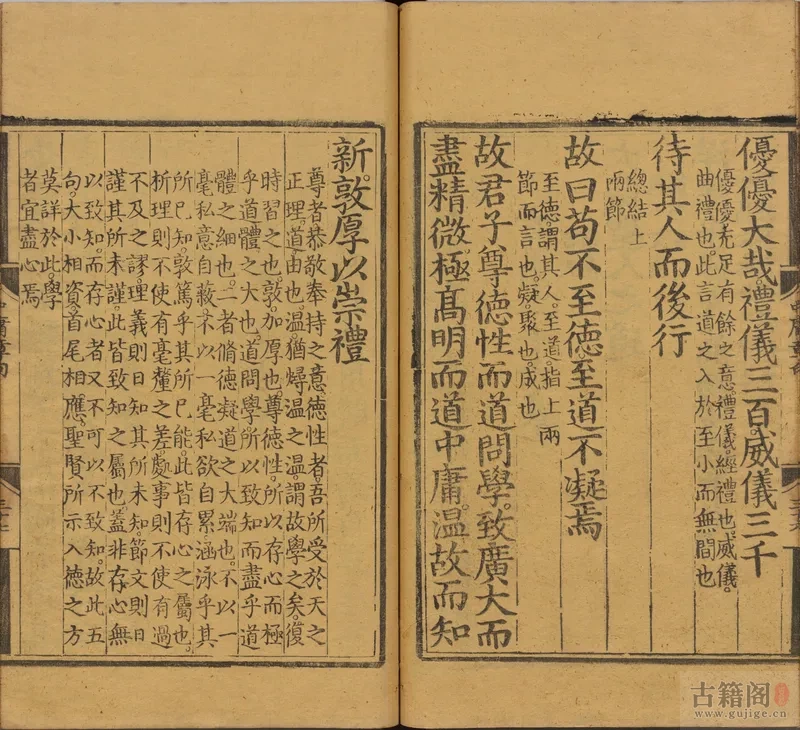 優優大哉禮儀三百威儀三千
優優充足有餘之意禮儀經禮也威儀
曲禮也此言道之入於至小而無間也
待其人而後行
總結上
兩節
故曰苟不至德至道不凝焉
至德謂其人至道指上兩
節而言也凝聚也成也
故君子尊德性而道問學致廣大而
盡精微極高明而道中庸溫故而知
新敦厚以崇禮
尊者恭敬奉持之意德性者吾所受於天之
正理道由也溫猶燖溫之溫謂故學之矣復
時習之也敦加厚也尊德性所以存心而極
乎道體之大也道問學所以致知而盡乎道
體之細也二者脩德凝道之大端也不以一
毫私意自蔽不以一毫私欲自累涵泳乎其
所已知敦篤乎其所已能此皆存心之屬也
析理則不使有毫釐之差處事則不使有過
不及之謬理義則日知其所未知節文則日
謹其所未謹此皆致知之屬也蓋非存心無
以致知而存心者又不可以不致知故此五
句大小相資首尾相應聖賢所示入德之方
莫詳於此學
者宜盡心焉
中庸章句
古籍阁
www.gujige.cn